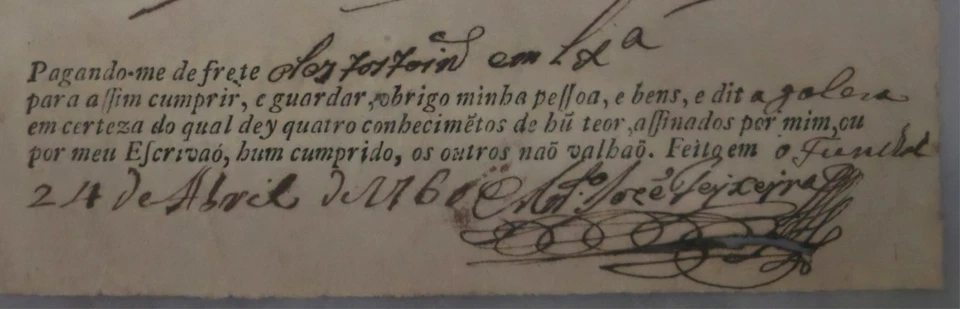 Pagando-me de frete Sez tostoins em Lxa
para aſſim cumprir, e guardar, obrigo minha peſſoa, e bens, e dita galera
em certeza do qual dey quatro conhecimẽtos de hũ teor, aſſinados por mim, ou
por meu Eſcrivaõ, hum cumprido, os outros naõ valhaõ. Feito em o Funchal
24 de Abril de 1760 Anto. Jozê Teixeira